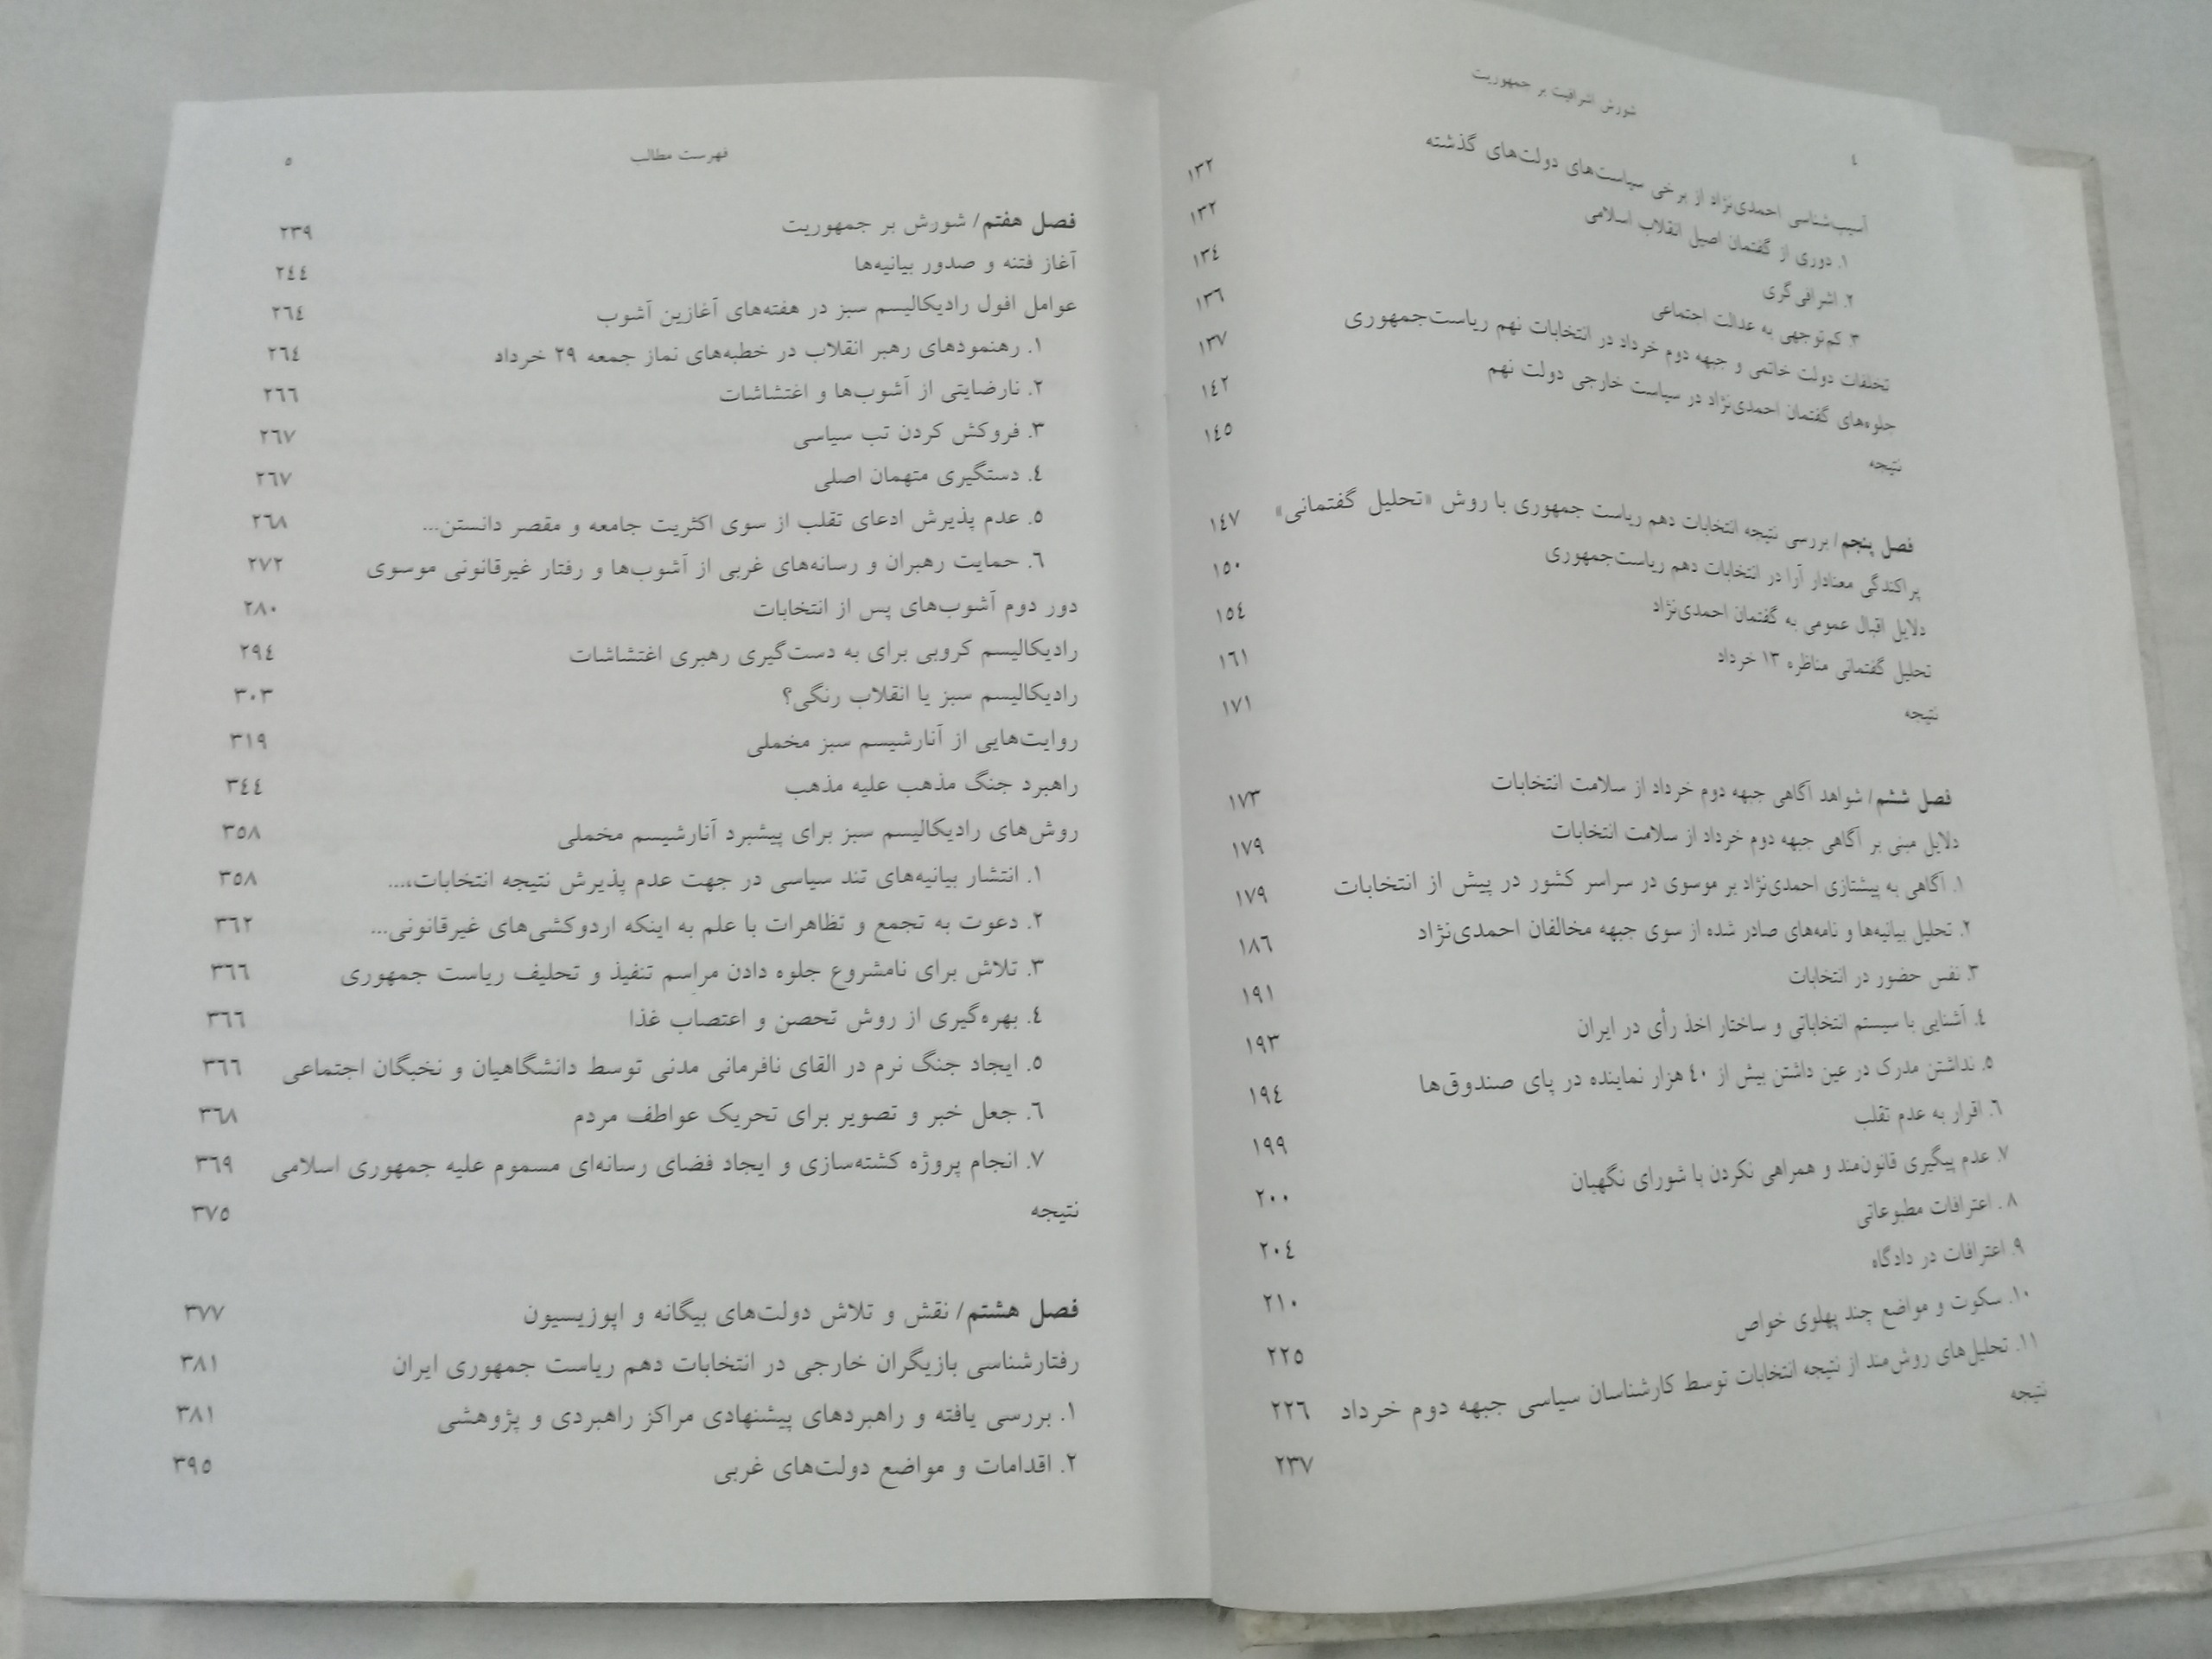 ٤
شورش اشرافیت بر جمهوریت
آسیب‌شناسی احمدی‌نژاد از برخی سیاست‌های دولت‌های گذشته ۱۳۲
۱. دوری از گفتمان اصیل انقلاب اسلامی ۱۳۲
۲. اشرافی‌گری ۱۳٤
۳. کم‌توجهی به عدالت اجتماعی ۱۳٦
تخلفات دولت خاتمی و جبهه دوم خرداد در انتخابات نهم ریاست‌جمهوری ۱۳۷
جلوه‌های گفتمان احمدی‌نژاد در سیاست خارجی دولت نهم ۱٤۲
نتیجه ۱٤٥
فصل پنجم/ بررسی نتیجه انتخابات دهم ریاست جمهوری با روش «تحلیل گفتمانی» ۱٤۷
پراکندگی معنادار آرا در انتخابات دهم ریاست‌جمهوری ۱٥۰
دلایل اقبال عمومی به گفتمان احمدی‌نژاد ۱٥٤
تحلیل گفتمانی مناظره ۱۳ خرداد ۱٦۱
نتیجه ۱۷۱
فصل ششم/ شواهد آگاهی جبهه دوم خرداد از سلامت انتخابات ۱۷۳
دلایل مبنی بر آگاهی جبهه دوم خرداد از سلامت انتخابات ۱۷۹
۱. آگاهی به پیشتازی احمدی‌نژاد بر موسوی در سراسر کشور در پیش از انتخابات ۱۷۹
۲. تحلیل بیانیه‌ها و نامه‌های صادر شده از سوی جبهه مخالفان احمدی‌نژاد ۱۸٦
۳. نفس حضور در انتخابات ۱۹۱
٤. آشنایی با سیستم انتخاباتی و ساختار اخذ رأی در ایران ۱۹۳
٥. نداشتن مدرک در عین داشتن بیش از ٤۰ هزار نماینده در پای صندوق‌ها ۱۹٤
٦. اقرار به عدم تقلب ۱۹۹
۷. عدم پیگیری قانون‌مند و همراهی نکردن با شورای نگهبان ۲۰۰
۸. اعترافات مطبوعاتی ۲۰٤
۹. اعترافات در دادگاه ۲۱۰
۱۰. سکوت و مواضع چند پهلوی خواص ۲۲٥
۱۱. تحلیل‌های روش‌مند از نتیجه انتخابات توسط کارشناسان سیاسی جبهه دوم خرداد ۲۲٦
نتیجه ۲۳۷
فهرست مطالب ٥
فصل هفتم/ شورش بر جمهوریت ۲۳۹
آغاز فتنه و صدور بیانیه‌ها ۲٤٤
عوامل افول رادیکالیسم سبز در هفته‌های آغازین آشوب ۲٦٤
۱. رهنمودهای رهبر انقلاب در خطبه‌های نماز جمعه ۲۹ خرداد ۲٦٤
۲. نارضایتی از آشوب‌ها و اغتشاشات ۲٦٦
۳. فروکش کردن تب سیاسی ۲٦۷
٤. دستگیری متهمان اصلی ۲٦۷
٥. عدم پذیرش ادعای تقلب از سوی اکثریت جامعه و مقصر دانستن... ۲٦۸
٦. حمایت رهبران و رسانه‌های غربی از آشوب‌ها و رفتار غیرقانونی موسوی ۲۷۲
دور دوم آشوب‌های پس از انتخابات ۲۸۰
رادیکالیسم کروبی برای به دست‌گیری رهبری اغتشاشات ۲۹٤
رادیکالیسم سبز یا انقلاب رنگی؟ ۳۰۳
روایت‌هایی از آنارشیسم سبز مخملی ۳۱۹
راهبرد جنگ مذهب علیه مذهب ۳٤٤
روش‌های رادیکالیسم سبز برای پیشبرد آنارشیسم مخملی ۳٥۸
۱. انتشار بیانیه‌های تند سیاسی در جهت عدم پذیرش نتیجه انتخابات،... ۳٥۸
۲. دعوت به تجمع و تظاهرات با علم به اینکه اردوکشی‌های غیرقانونی... ۳٦۲
۳. تلاش برای نامشروع جلوه دادن مراسم تنفیذ و تحلیف ریاست جمهوری ۳٦٦
٤. بهره‌گیری از روش تحصن و اعتصاب غذا ۳٦٦
٥. ایجاد جنگ نرم در القای نافرمانی مدنی توسط دانشگاهیان و نخبگان اجتماعی ۳٦٦
٦. جعل خبر و تصویر برای تحریک عواطف مردم ۳٦۸
۷. انجام پروژه کشته‌سازی و ایجاد فضای رسانه‌ای مسموم علیه جمهوری اسلامی ۳٦۹
نتیجه ۳۷٥
فصل هشتم/ نقش و تلاش دولت‌های بیگانه و اپوزیسیون ۳۷۷
رفتارشناسی بازیگران خارجی در انتخابات دهم ریاست جمهوری ایران ۳۸۱
۱. بررسی یافته و راهبردهای پیشنهادی مراکز راهبردی و پژوهشی ۳۸۱
۲. اقدامات و مواضع دولت‌های غربی ۳۹٥